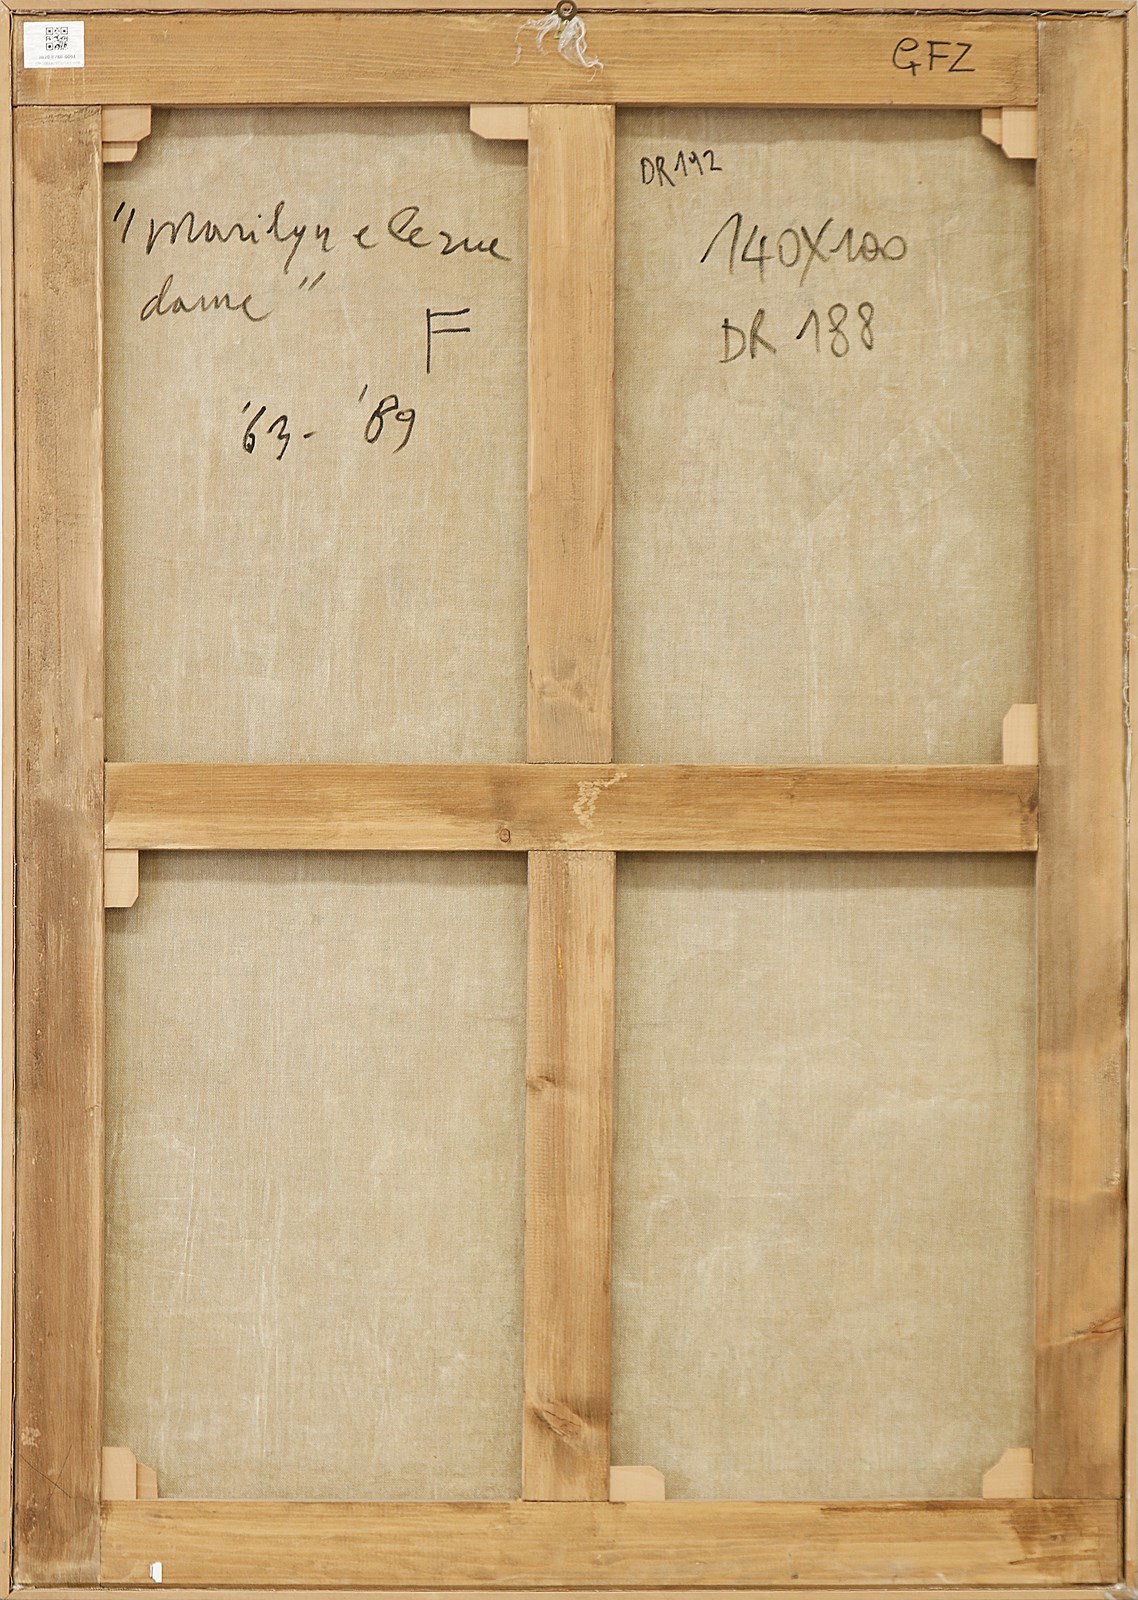 GFZ
"Marilyn e le sue
dame"
F
'63- '89
DR 192
140X100
DR 188